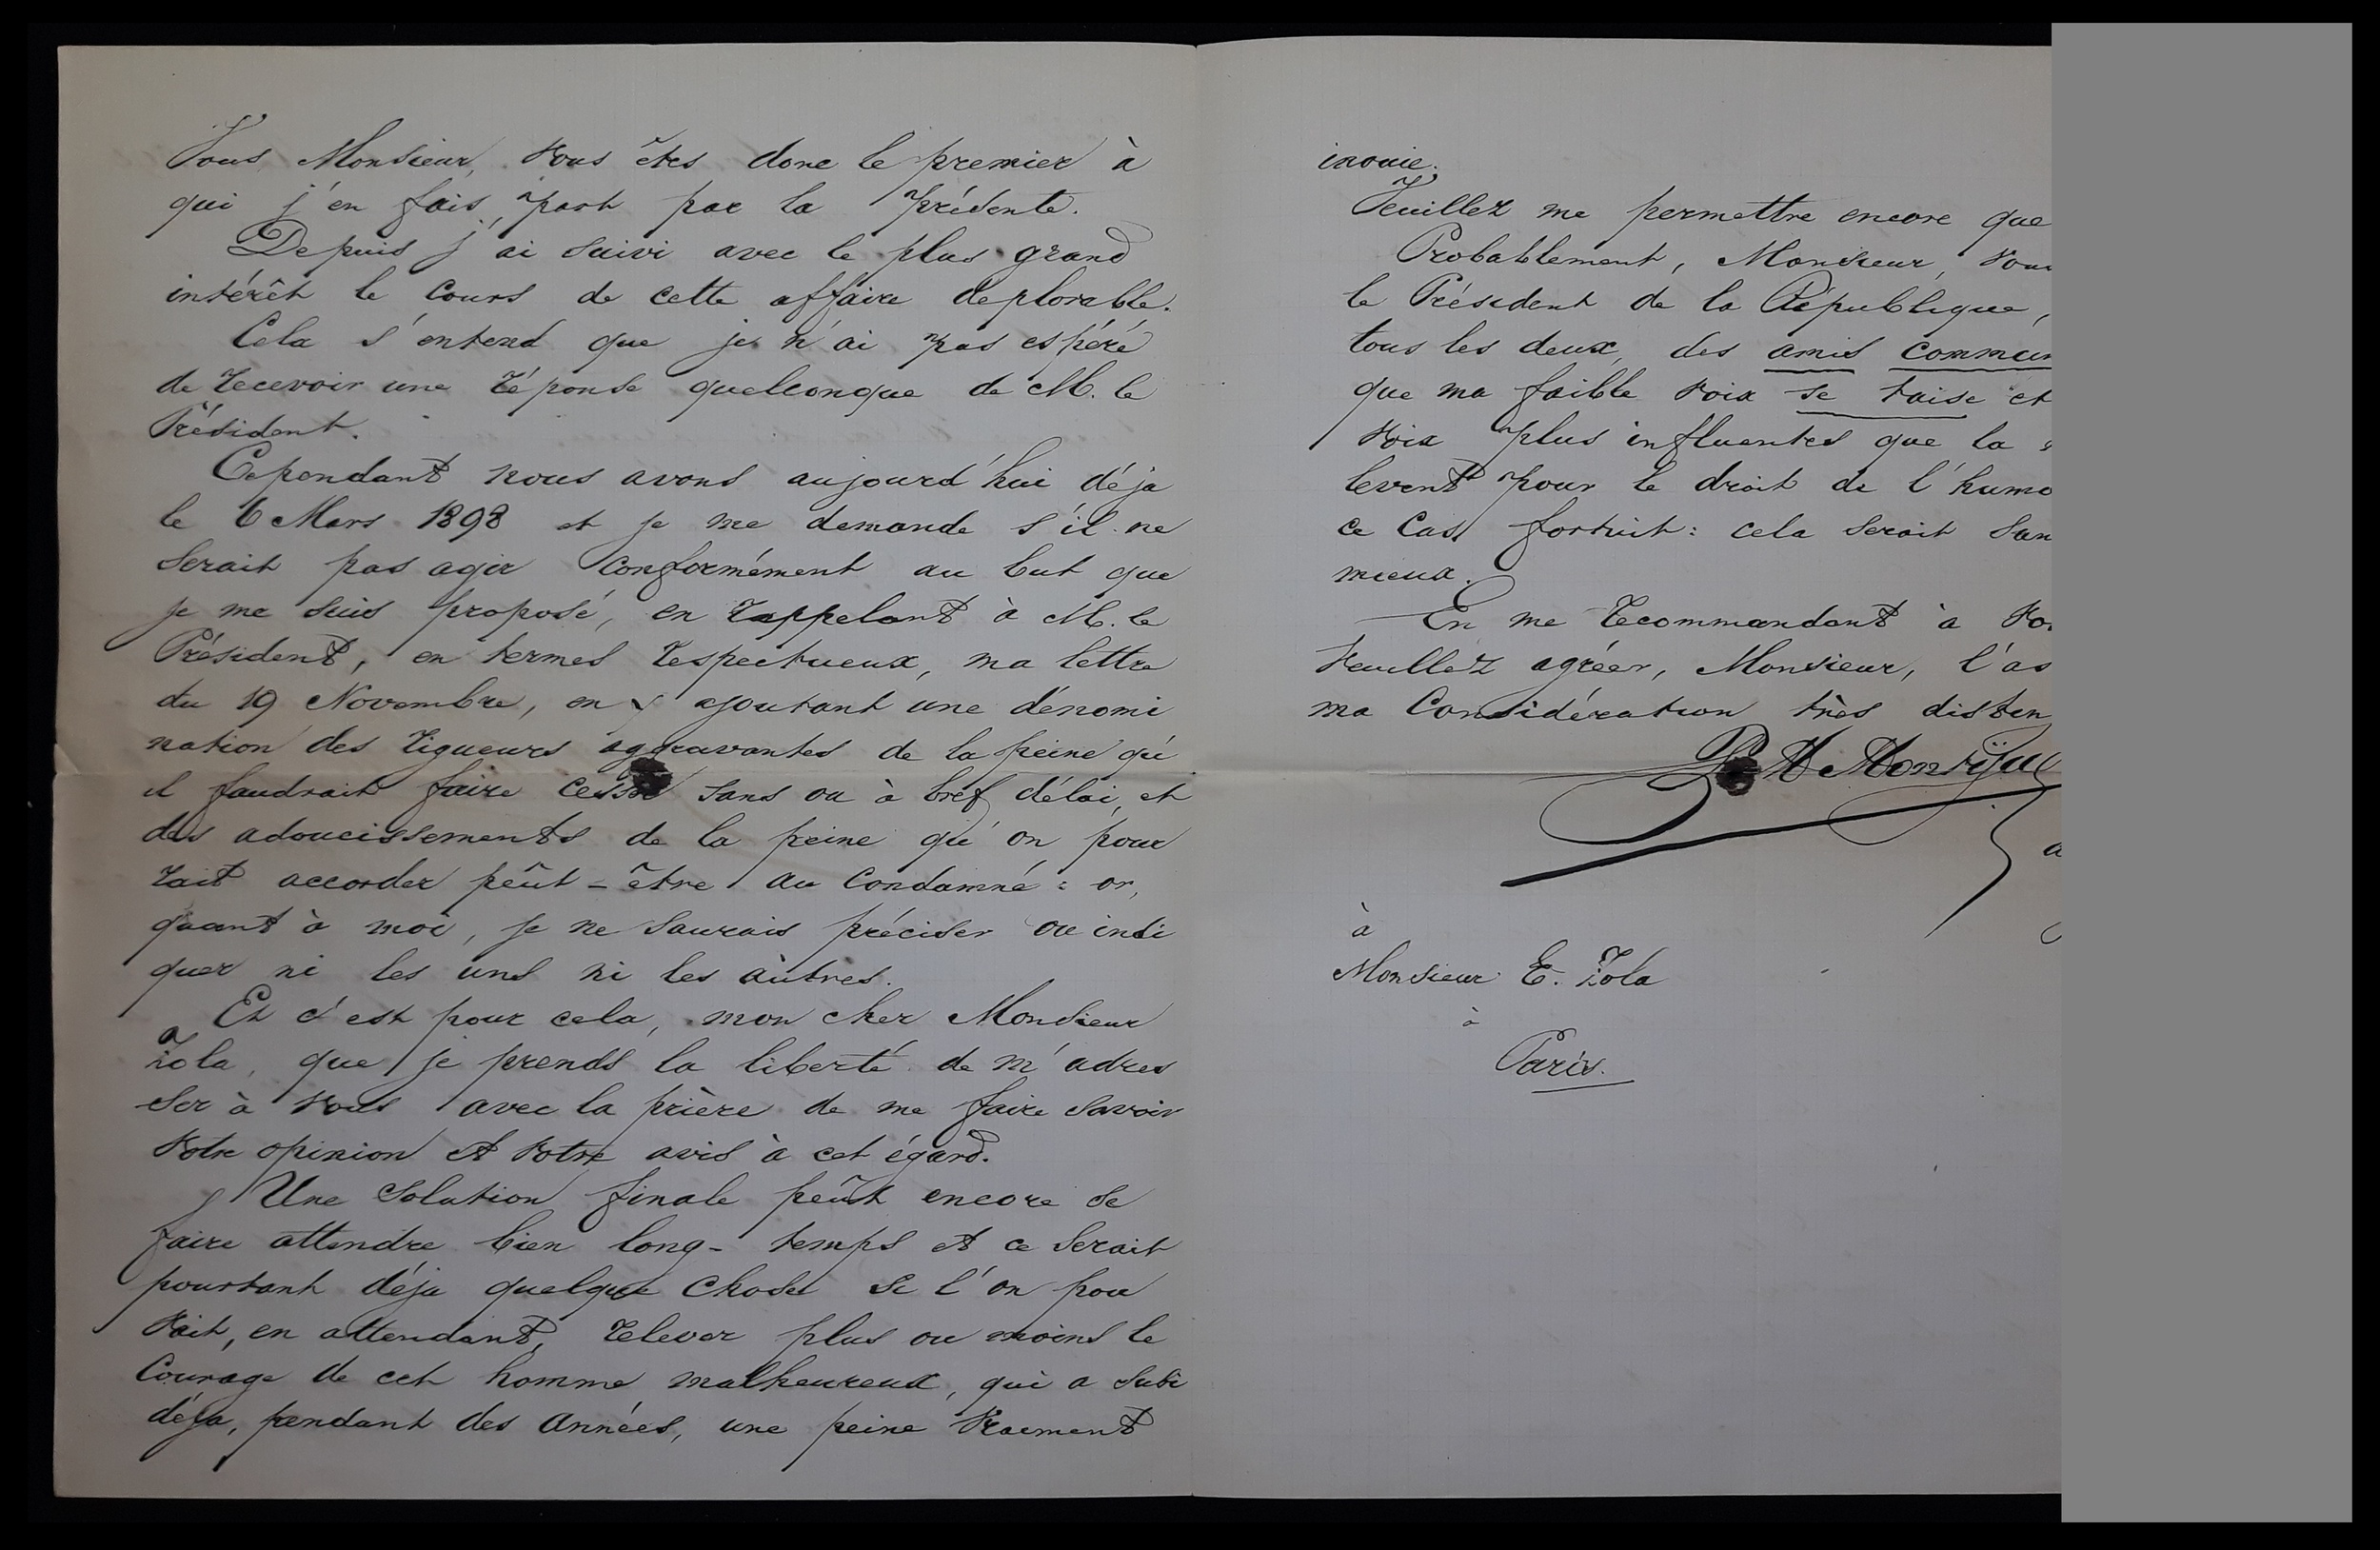 Vous Monsieur, Vous êtes donc le premier à
qui j'en fais part par la présente.
Depuis j'ai suivi avec le plus grand
intérêt le cours de cette affaire deplorable.
Cela s'entend que je n'ai pas espéré
de recevoir une réponse quelconque de M. le
Président.
Cependant nous avons aujourd'hui déja
le 6 Mars 1898 et je me demande s'il ne
serait pas agir conformément au but que
je me suis proposé, en rappelant à M. le
Président, en termes respectueux, ma lettre
du 19 Novembre, en y ajoutant une dénomi
nation des rigueurs aggravantes de la peine qu'
il faudrait faire cesser sans ou à bref délai, et
des adoucissements de la peine qu'on pour
rait accorder peût-être au condamné: or,
quant à moi, je ne saurais préciser ou indi
quer ni les uns ni les autres.
Et c'est pour cela, mon cher Monsieur
Zola, que je prends la liberté de m'adres
ser à Vous avec la prière de me faire savoir
Votre opinion et Votre avis à cet égard.
Une solution finale peût encore se
faire attendre bien long-temps et ce serait
pourtant déja quelque chose si l'on pou
vait, en attendant, relever plus ou moins le
courage de cet homme malheureux, qui a subi
déja, pendant des années, une peine vraement
inouie.
Veuillez me permettre encore que
Probablement, Monsieur,
le Président de la République,
tous les deux, des amis
que ma faible voix se taise et
voix plus influentes que la
levent pour le droit de
ce cas fortuit: cela serait
mieux.
En me recommandant à
Veuillez agréer, Monsieur,
ma Considération très
à
Monsieur E. Zola
à
Paris.